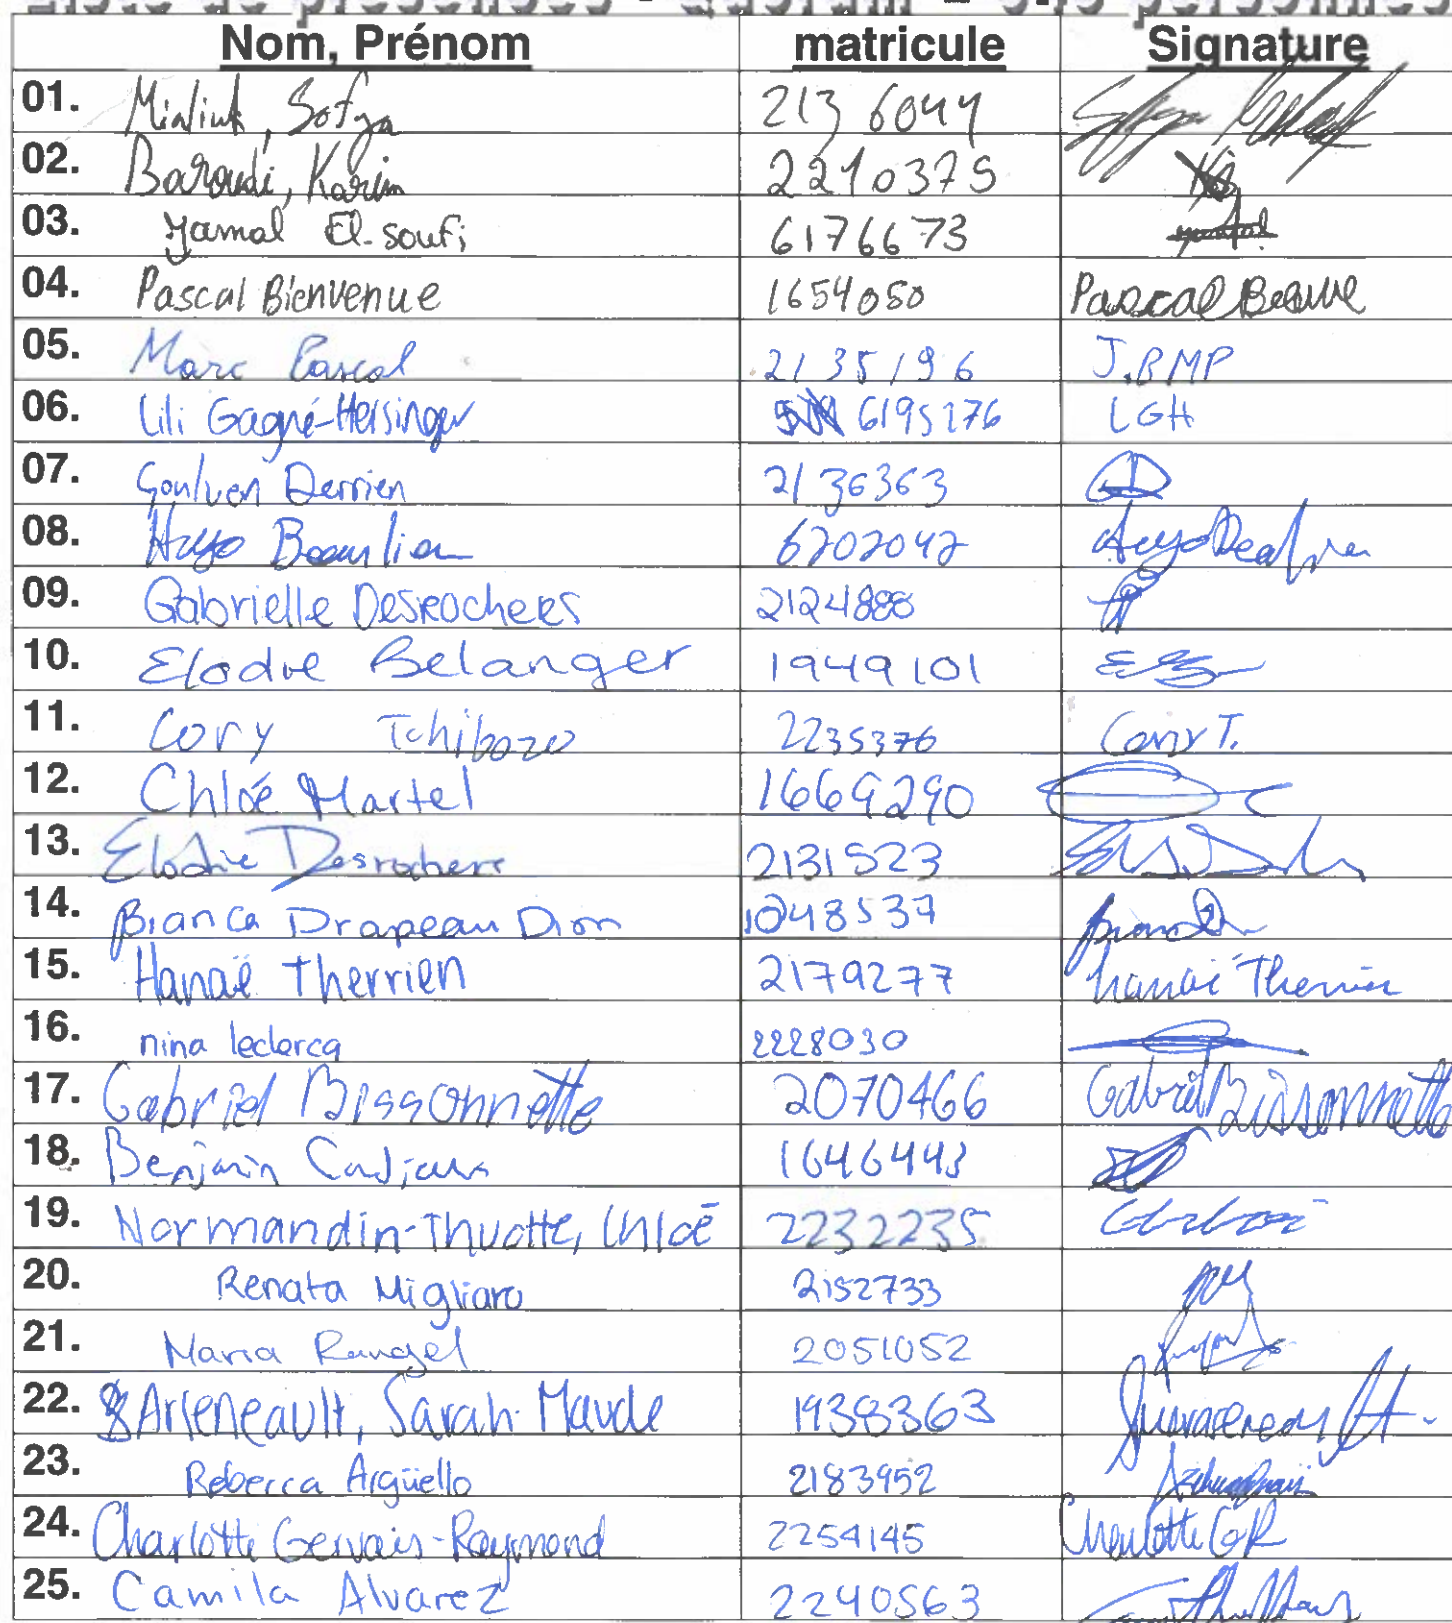 Liste de présences - Quorum - 345 personnes
Nom, Prénom matricule Signature
01. Sofya 2136044
02. Baroudi, Karim 2210375
03. Jamal El-soufi 6176673
04. Pascal Bienvenue 1654050 Pascal
05. Marc Pascal 2135196 J.BMP
06. Lili Gagné-Hersinger 6195276 LGH
07. Goulven Derrien 2136363
08. Hugo Beaulieu 6202042
09. Gabrielle Desrochers 2124888
10. Elodie Belanger 1949101
11. Cory Tchibozo 2235376 Cory T.
12. Chloé Martel 16669290
13. Elodie Desrochers 2131523
14. Bianca Drapeau Dion 1048537
15. Hanaé Therrien 2179277 hanaé Therrien
16. nina leclercq 2228030
17. Gabriel Bissonnette 2070466 Gabriel Bissonnette
18. Benjamin Cadieux 1646443
19. Normandin-Thuotte, Chloé 2232235
20. Renata Migliaro 2152733
21. Maria Rangel 2051052
22. Arseneault, Sarah-Maude 1938363
23. Rebecca Argüello 2183952
24. Charlotte Gervais-Raymond 2254145 Charlotte GR
25. Camila Alvarez 2240563